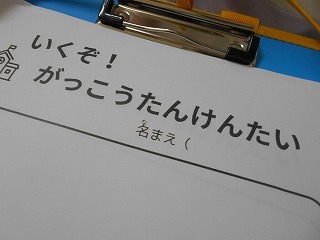 いくぞ！
がっこうたんけんたい
名まえ（